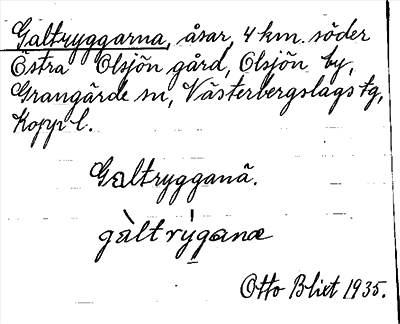 Galtryggarna, åsar, 4 km. söder
Östra Olsjön gård, Olsjön by,
Grangärde sn, Västerbergslags tg,
Kopp. l.
Galtrygganä.
gàltrýganæ
Otto Blixt 1935.